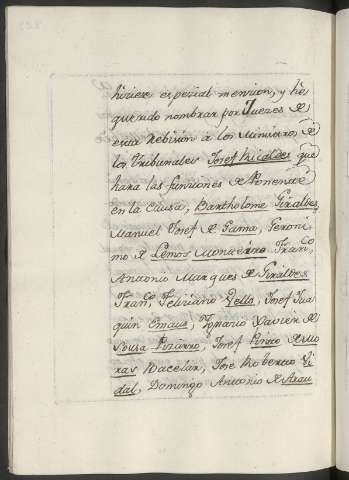 hiziere espezial mension, y he
querido nombrar por Juezes de
esta Rebision a los Ministros de
los Tribunales Josef Ricaldes que
hara las funsiones de Ponente
en la Causa, Bartholome Giraldes,
Manuel Josef de Gama, Geroni,,
mo de Lemos Monteiro Fran.co
Antonio Marques de Giraldes
Fran.co Feliziano Vello, Josef Jua
quin Emaus, Ygnacio Xavier de
Souza Pizarro, Josef Pinto de Mo
ras Bacelar, Jose Roberto Vi
dal, Domingo Antonio de Arau